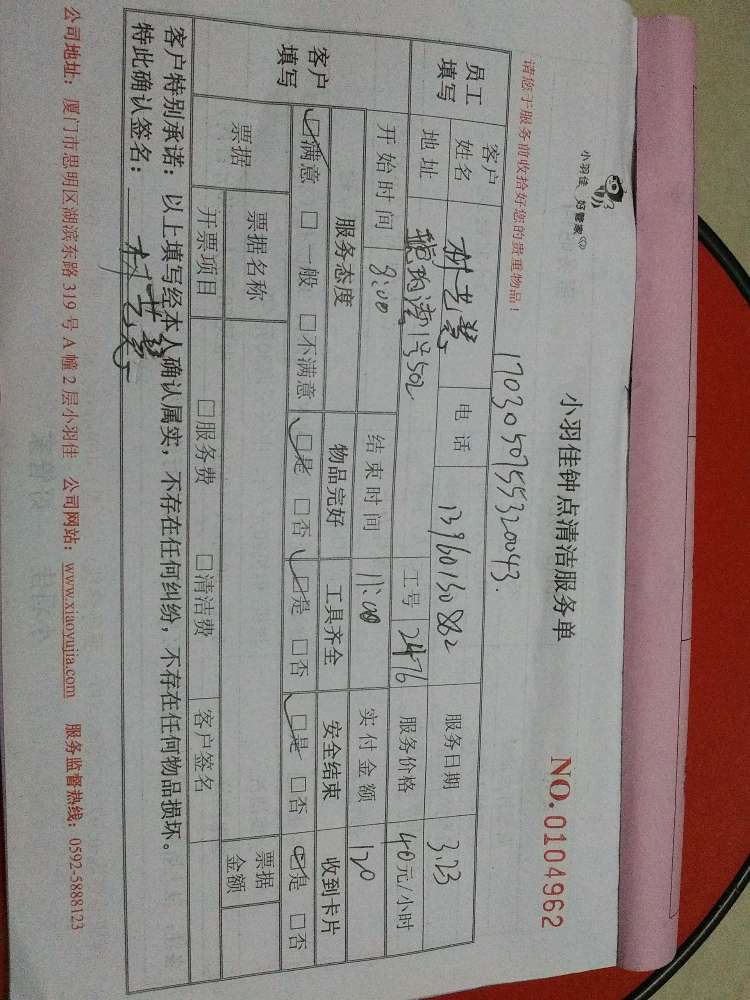 小羽佳 好管家
小羽佳钟点清洁服务单
NO.0104962
请您于服务前收拾好您的贵重物品！
1703050755320043.
员工填写
客户姓名 林艺 电话 13960150882 服务日期 3.23
地址 1号502 工号 2476 服务价格 40元/小时
开始时间 8:00 结束时间 11:00 实付金额 120
客户填写
服务态度 物品完好 工具齐全 安全结束 收到卡片
☑满意 □一般 □不满意 ☑是 □否 ☑是 □否 ☑是 □否 ☑是 □否
票据 票据名称 票据金额
开票项目 □服务费 □清洁费 客户签名
客户特别承诺：以上填写经本人确认属实，不存在任何纠纷，不存在任何物品损坏。
特此确认签名：林艺
公司地址：厦门市思明区湖滨东路319号A幢2层小羽佳 公司网站：www.xiaoyujia.com 服务监督热线：0592-5888123